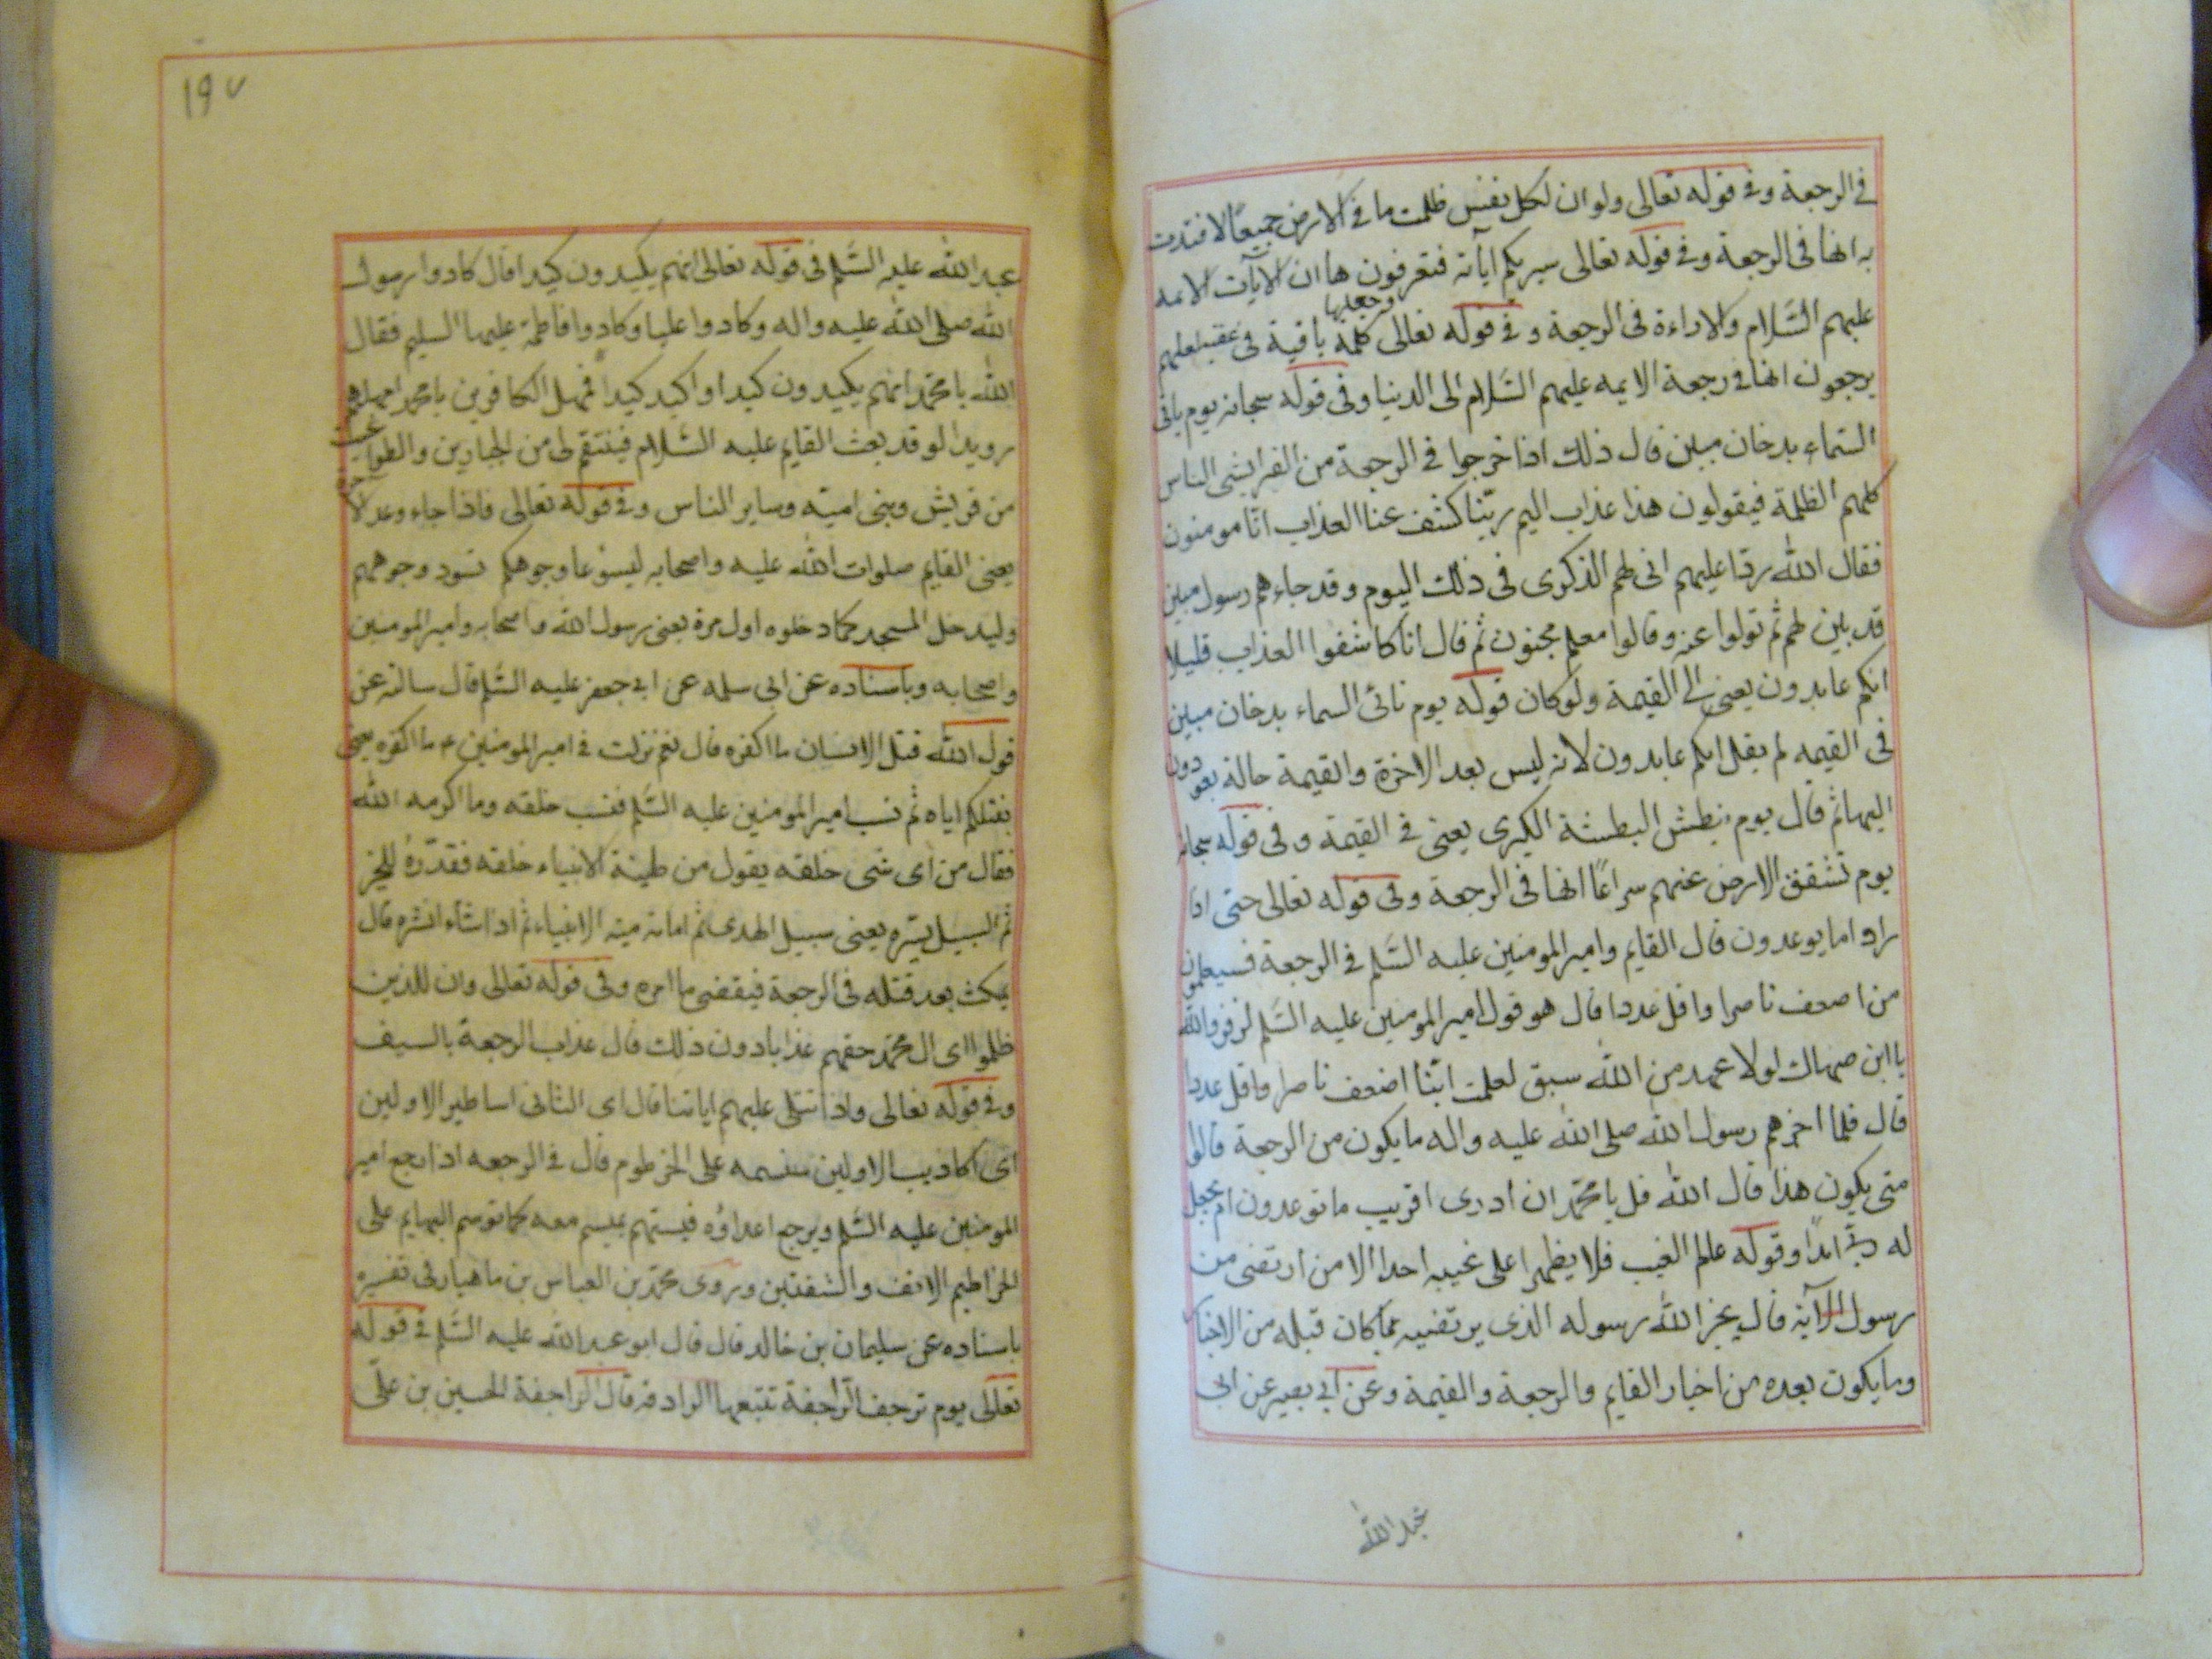 في الرجعة وفي قوله تعالى ولو ان لكل نفس ظلمت ما في الارض جميعًا لافتدت
به انها في الرجعة وفي قوله تعالى سيريكم اياته فتعرفون ها ان الآيات الايمه
عليهم السَّلام والاراءة في الرجعة وفي قوله تعالى وجعلها كلمة باقية في عقبه لعلهم
يرجعون انها في رجعة الايمه عليهم السَّلام الى الدنيا وفي قوله سبحانه يوم ياتي
السماء بدخان مبين قال ذلك اذا خرجوا في الرجعة من القبر يغشى الناس
كلهم الظلمة فيقولون هذا عذاب اليم ربّنا كشف عنا العذاب انّا مومنون
فقال الله ردّا عليهم انى لهم الذكرى في ذلك اليوم وقد جاءهم رسول مبين
قد بين لهم ثم تولوا عنه وقالوا معلم مجنون ثم قال انّا كاشفوا العذاب قليلا
انكم عايدون يعنى الى القيمة ولو كان قوله يوم تاتى السماء بدخان مبين
في القيمه لم يقل انكم عايدون لانه ليس بعد الاخرة والقيمة حالة يعودون
اليها ثم قال يوم نبطش البطشة الكبرى يعنى في القيمة وفي قوله سبحانه
يوم تشقق الارض عنهم سراعًا انها في الرجعة وفي قوله تعالى حتى اذا
راو اما يوعدون قال القايم وامير المومنين عليه السَّلم في الرجعة فسيعلمون
من اضعف ناصرا واقل عددا قال هو قول امير المومنين عليه السَّلم لزفر والله
يا ابن صهاك لولا عهد من الله سبق لعلمت ايّنا اضعف ناصرا واقل عددا
قال فلما اخبرهم رسول الله صلى الله عليه واله ما يكون من الرجعة قالوا
متى يكون هذا قال الله قل يا محمّد ان ادرى اقريب ما توعدون ام يجعل
له ربّى امدًا وقوله عالم الغيب فلا يظهر على غيبه احدا الا من ارتضى من
رسول الآية قال يخبر الله رسوله الذى يرتضيه بما كان قبله من الاخبار
وما يكون بعده من اخبار القايم والرجعة والقيمة وعن ابي بصير عن ابى
عبد الله
١٩٧
عبد الله عليه السَّلم في قوله تعالى انهم يكيدون كيدا قال كادوا رسول
الله صلى الله عليه واله وكادوا عليا وكادوا فاطمة عليها السلم فقال
الله يا محمّد انهم يكيدون كيدا واكيد كيدًا فمهل الكافرين يا محمد امهلهم
رويدا لو قد بعث القايم عليه السَّلام فينتقم لى من الجبارين والطواغيت
من قريش وبنى اميّة وساير الناس وفي قوله تعالى فاذا جاء وعد الاخرة
يعنى القايم صلوات الله عليه واصحابه ليسوءا وجوهكم تسود وجوههم
وليدخل المسجد كما دخلوه اول مرة يعنى رسول الله واصحابه وامير المومنين
واصحابه وباسناده عن ابى سلمه عن ابي جعفر عليه السَّلم قال سالته عن
قول الله قتل الانسان ما اكفره قال نعم نزلت في امير المومنين ع ما اكفره يعنى
بقتلكم اياه ثم نسب امير المومنين عليه السَّلم فنسب خلقه وما اكرمه الله
فقال من اى شى خلقه يقول من طينة الانبياء خلقه فقدّرهُ للخير
ثم السبيل يسّره يعنى سبيل الهدى ثم اماته ميتة الانبياء ثم اذا شاء انشره قال
يمكث بعد قتله في الرجعة فيقضى ما امره وفي قوله تعالى وان للذين
ظلموا اى ال محمّد حقهم عذابا دون ذلك قال عذاب الرجعة بالسيف
وفي قوله تعالى واذا تتلى عليهم اياتنا قال اى الثانى اساطير الاولين
اى اكاذيب الاولين سنسمه على الخرطوم قال في الرجعه اذا رجع امير
المومنين عليه السَّلم ويرجع اعداؤه فيسمهم بميسم معه كما توسم البهايم على
الخراطيم الانف والشفتين وروى محمّد بن العباس بن ماهيار في تفسيره
باسناده عن سليمان بن خالد قال قال ابو عبد الله عليه السَّلم في قوله
تعالى يوم ترجف الرّاجفة تتبعها الرادفه قال الراجفة الحسين بن علىّ